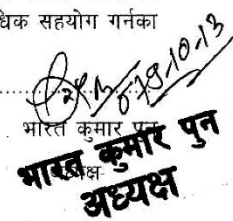 धिक सहयोग गर्नका
०७९-१०-१३
भारत कुमार पुन
भारत कुमार पुन
अध्यक्ष